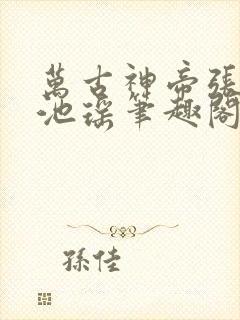 萬古神帝張
池瑤筆趣閣
孫佳